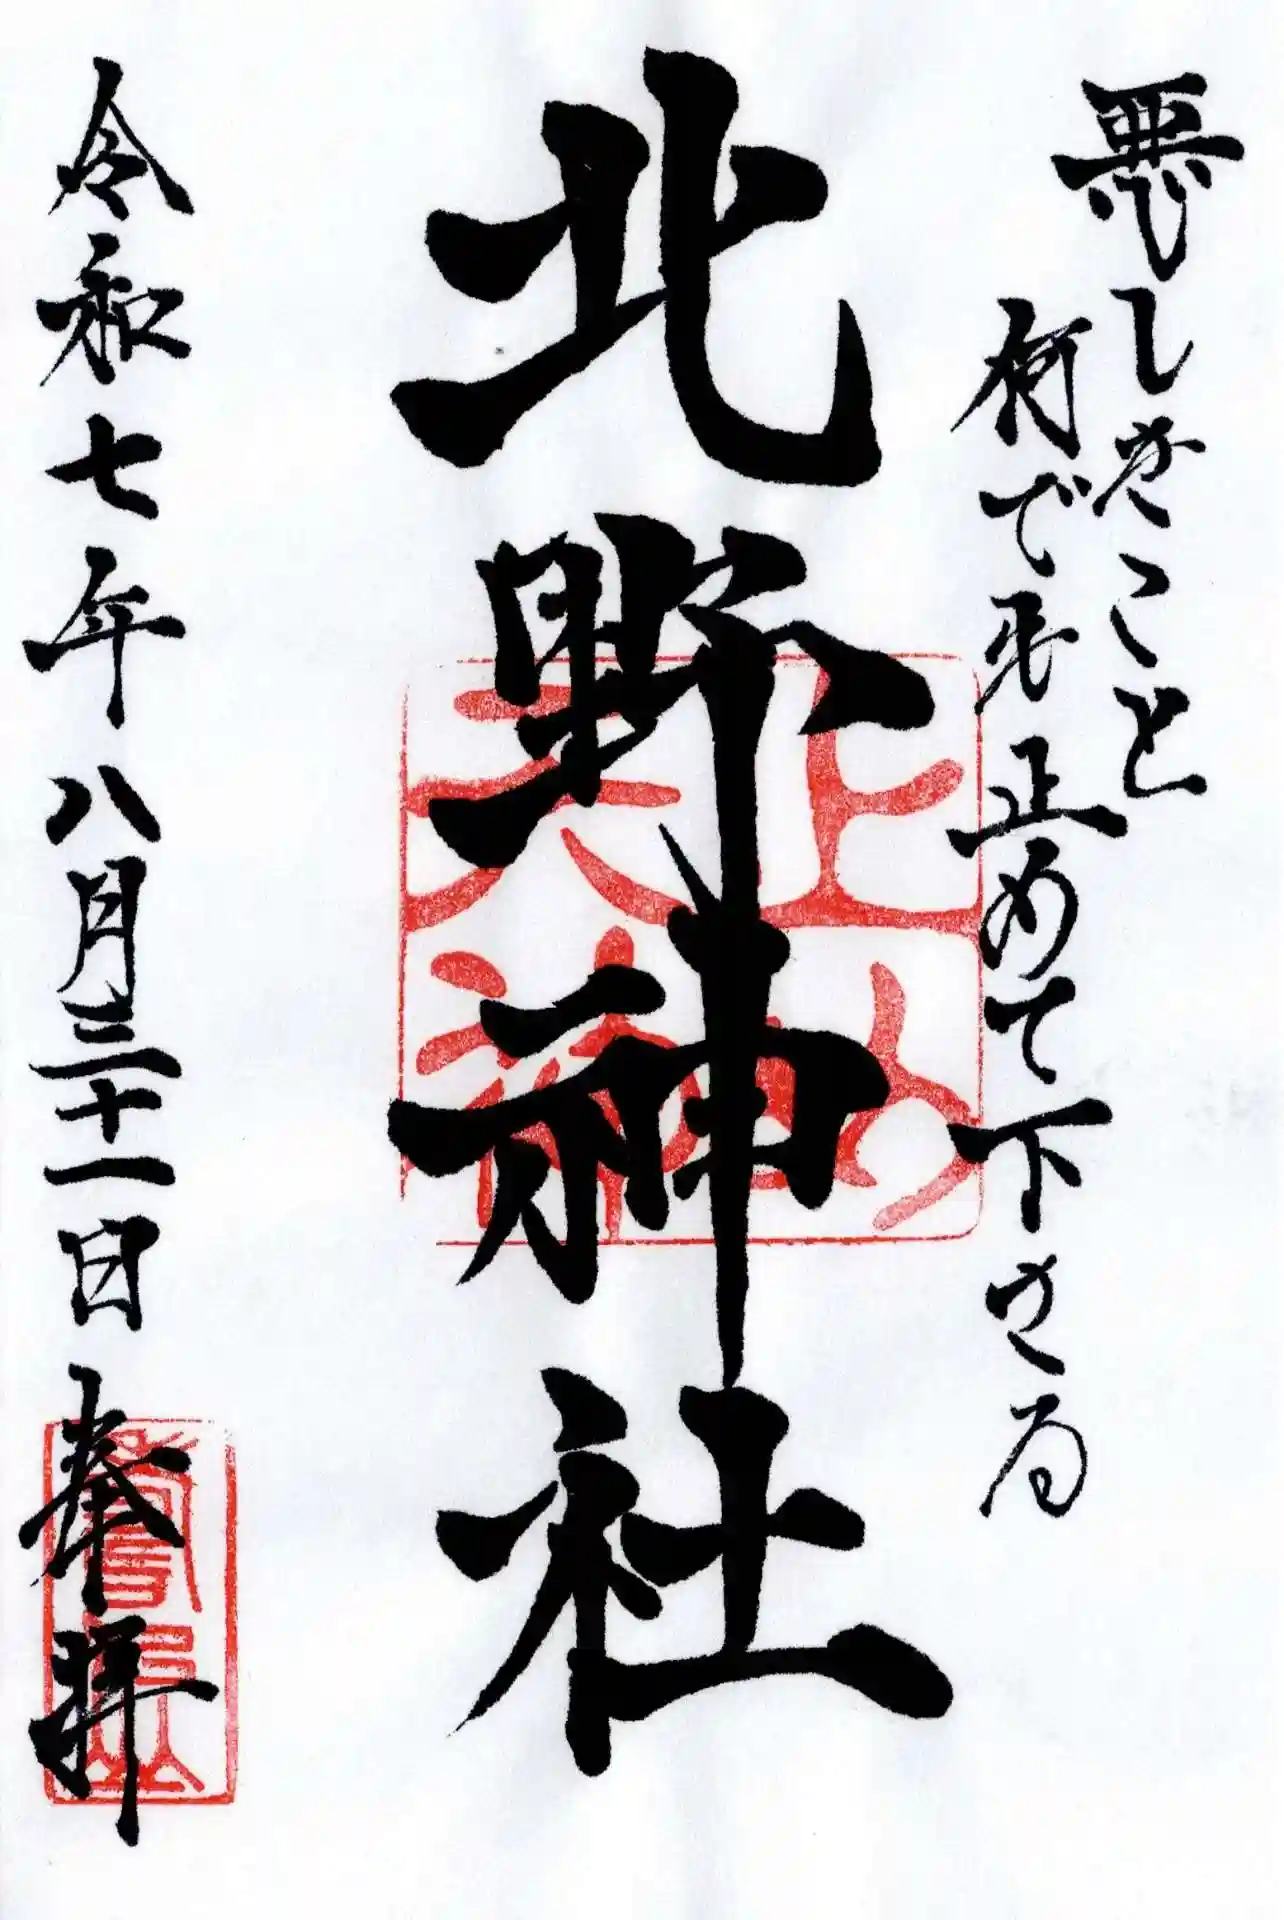 悪しきこと
何でも正めて下さる
北野神社
天神
令和七年八月三十一日 奉拝